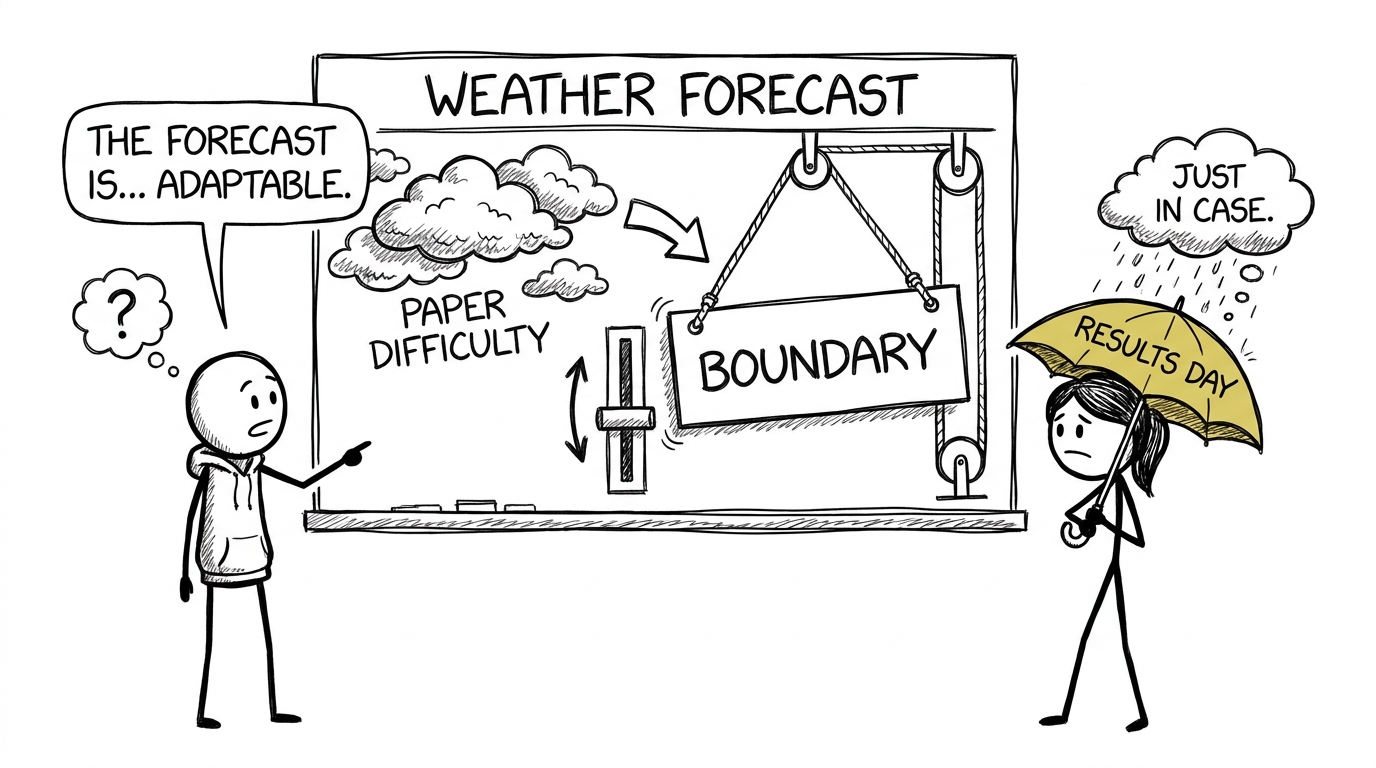 WEATHER FORECAST
THE FORECAST
IS... ADAPTABLE.
?
PAPER
DIFFICULTY
BOUNDARY
JUST
IN CASE.
RESULTS DAY